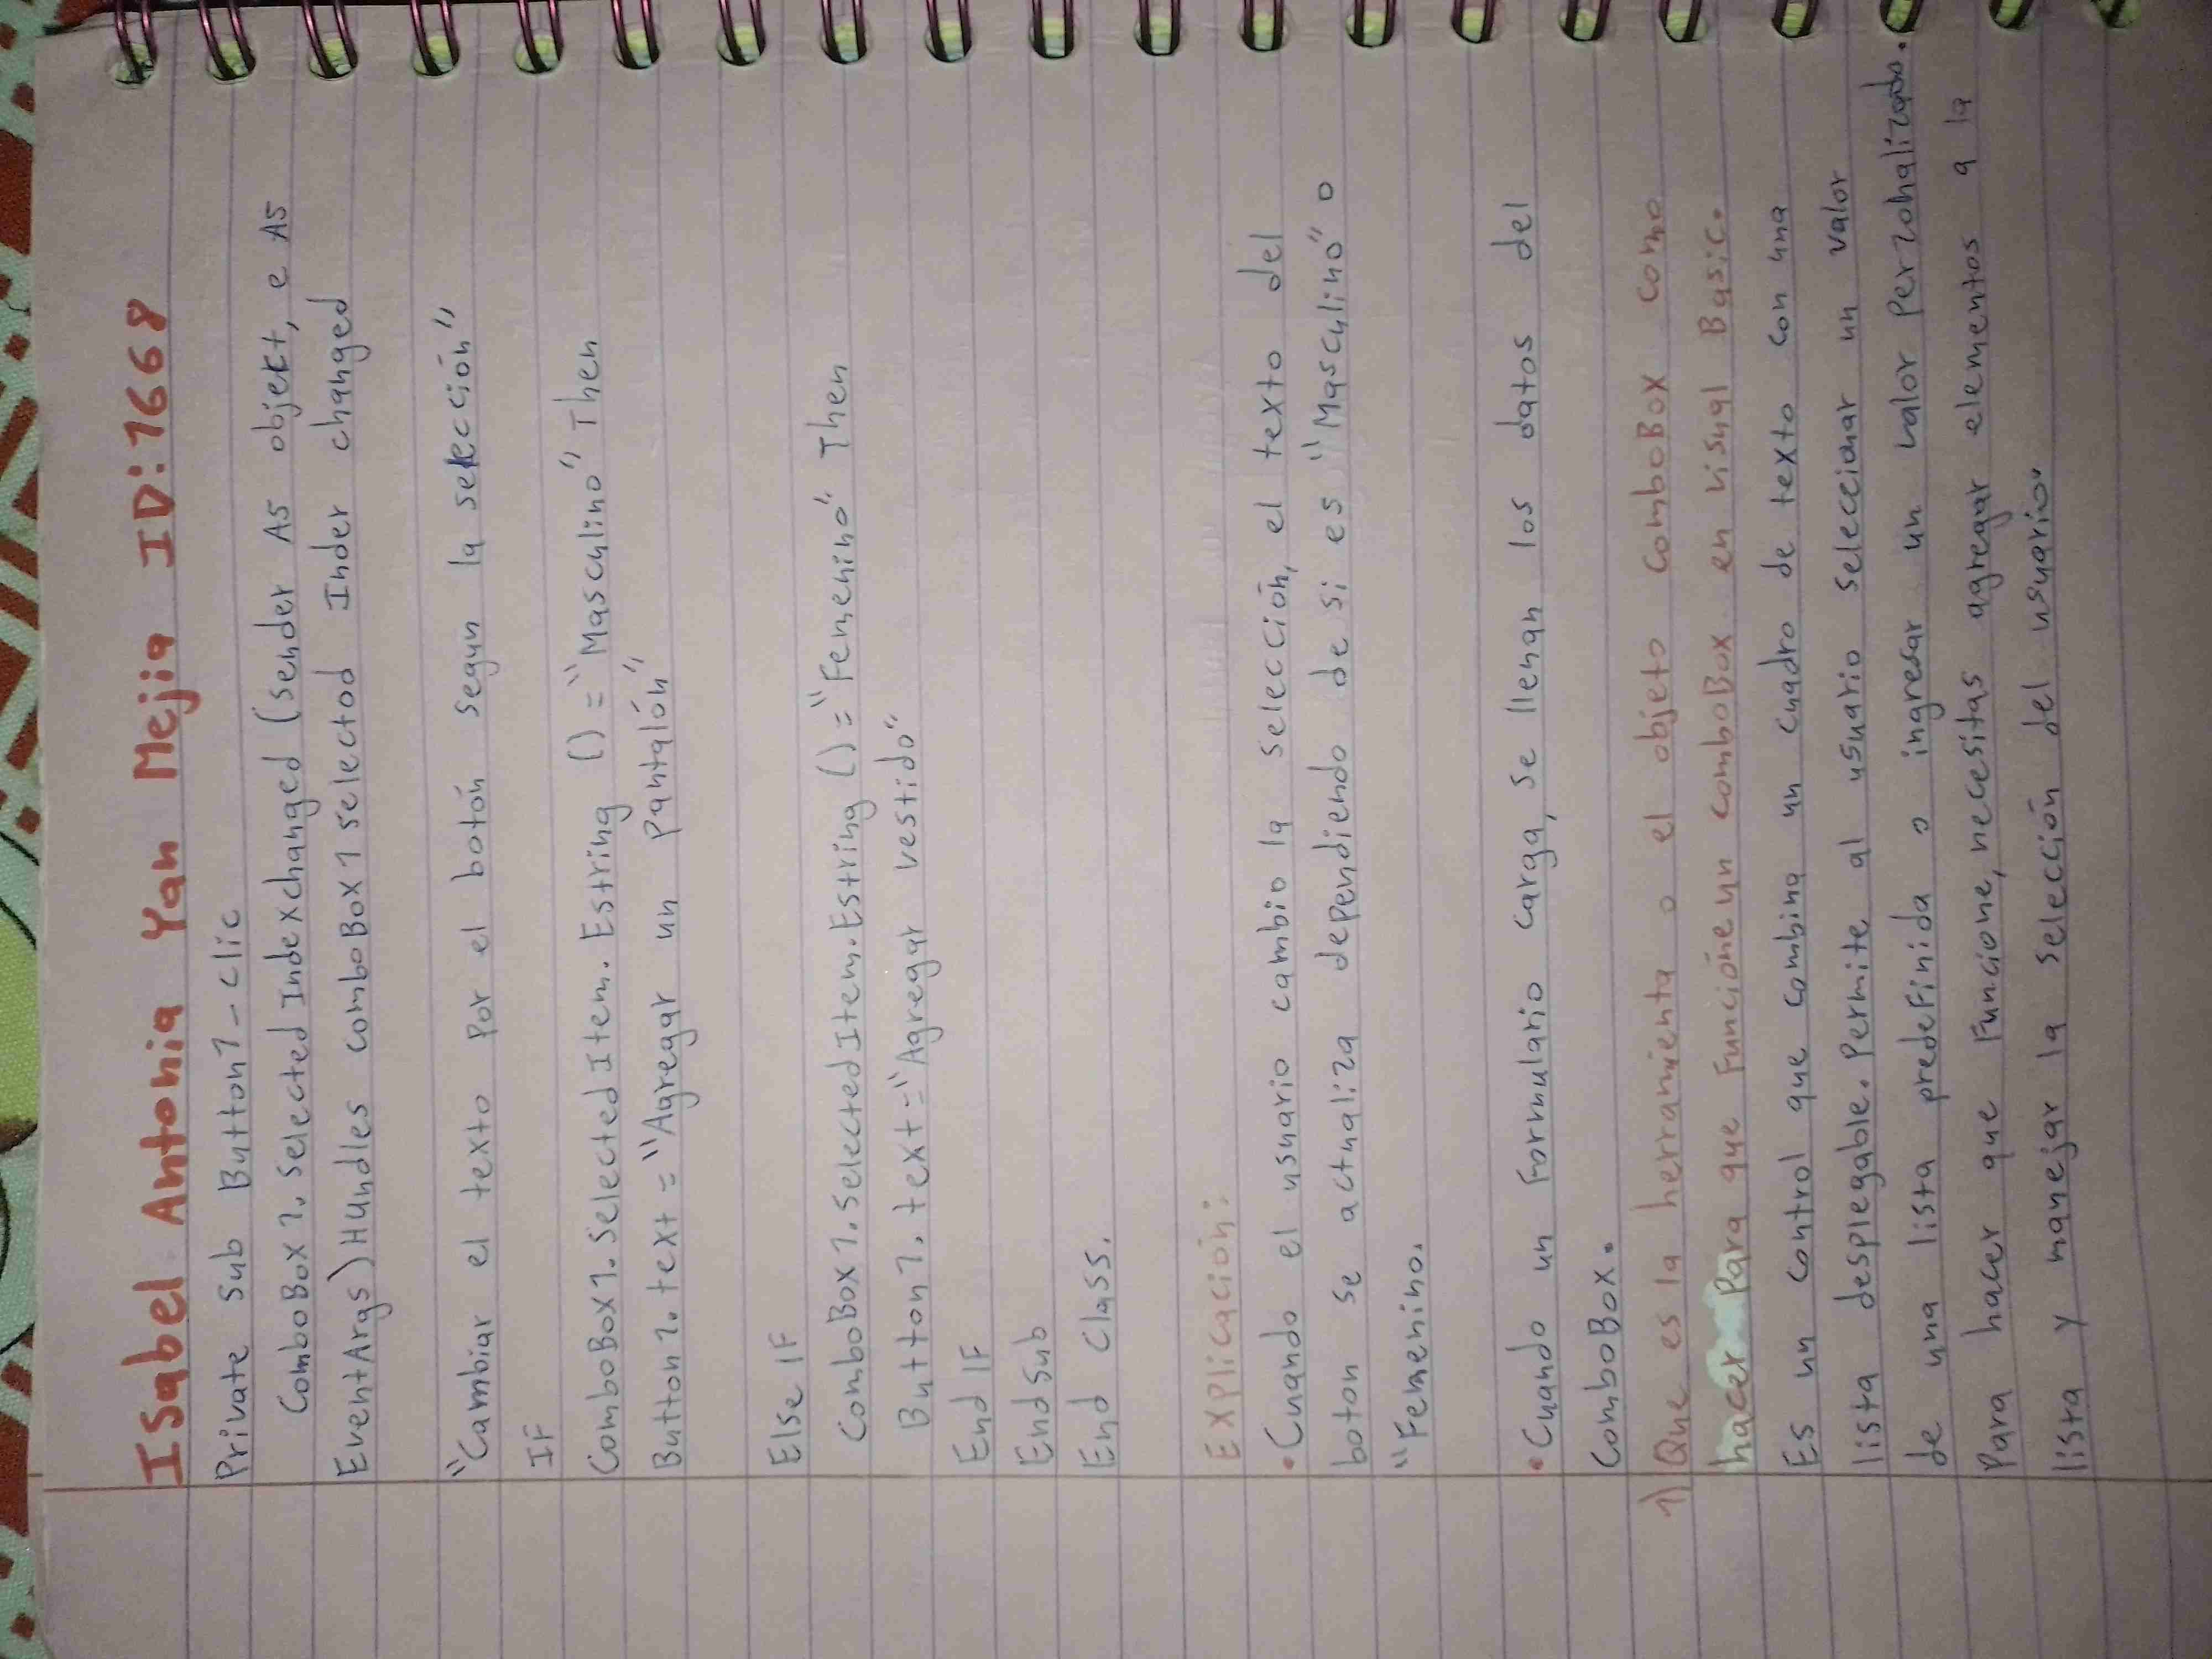 Isabel Antonia Yan Mejia ID:1668
Private Sub Button1-clic
ComboBox1.SelectedIndexchanged (Sender As objekt, e As
EventArgs) Hundles comboBox1 selectod Inder changed
"Cambiar el texto por el botón segun la selección"
IF
ComboBox1.SelectedItem.Estring () = "Masculino" Then
Button1.text = "Agregar un pantalón"
Else IF
ComboBox1.SelectedItem.Estring () = "Femenino" Then
Button1.text = "Agregar vestido"
End IF
End Sub
End Class.
Explicación:
• Cuando el usuario cambio la selección, el texto del
boton se actualiza dependiendo de si es "Masculino" o
"Femenino.
• Cuando un Formulario carga, se llenan los datos del
ComboBox.
1) Que es la herramienta o el objeto comboBox como
hacer Para que Funcione un comboBox en visual Basic.
Es un control que combina un cuadro de texto con una
lista desplegable. Permite al usuario seleccionar un valor
de una lista predefinida o ingresar un valor perzonalizado.
Para hacer que Funcione, necesitas agregar elementos a la
lista y manejar la selección del usuario.